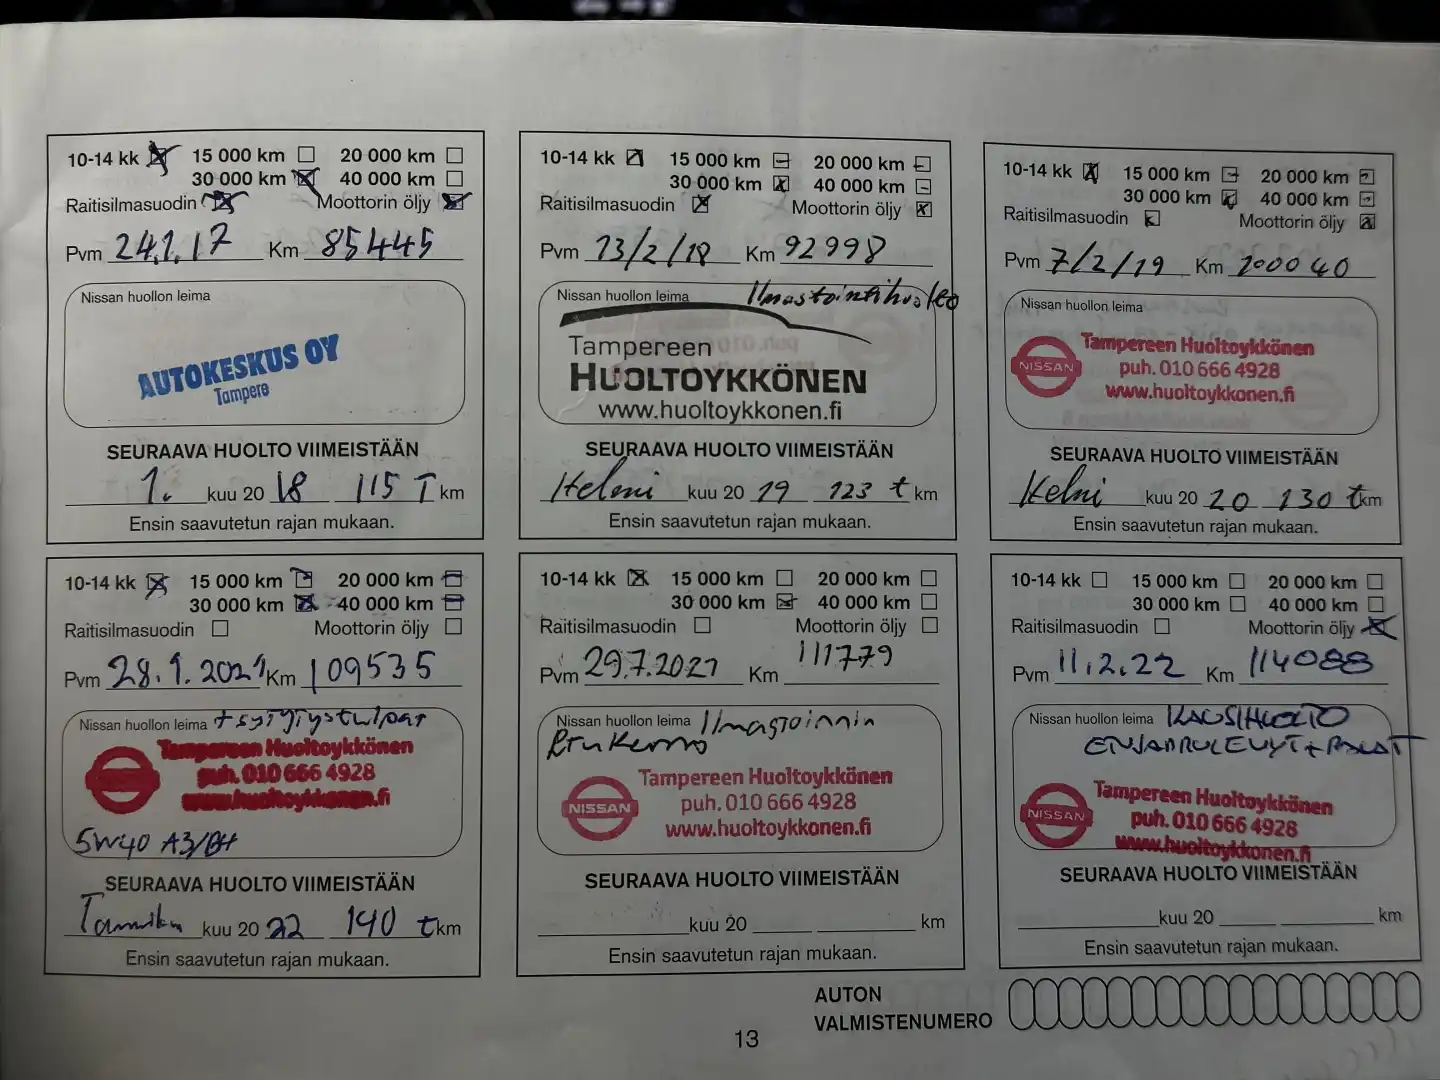 10-14 kk 15 000 km 20 000 km
30 000 km 40 000 km
Raitisilmasuodin Moottorin öljy
Pvm 24.1.17 Km 85445
Nissan huollon leima
AUTOKESKUS OY
Tampere
SEURAAVA HUOLTO VIIMEISTÄÄN
1. kuu 20 18 115 T km
Ensin saavutetun rajan mukaan.
10-14 kk 15 000 km 20 000 km
30 000 km 40 000 km
Raitisilmasuodin Moottorin öljy
Pvm 13/2/18 Km 92998
Nissan huollon leima Ilmastointihuolto
Tampereen
HUOLTOYKKÖNEN
www.huoltoykkonen.fi
SEURAAVA HUOLTO VIIMEISTÄÄN
Helmi kuu 20 19 123 t km
Ensin saavutetun rajan mukaan.
10-14 kk 15 000 km 20 000 km
30 000 km 40 000 km
Raitisilmasuodin Moottorin öljy
Pvm 7/2/19 Km 100040
Nissan huollon leima
Tampereen Huoltoykkönen
NISSAN puh. 010 666 4928
www.huoltoykkonen.fi
SEURAAVA HUOLTO VIIMEISTÄÄN
Helmi kuu 20 20 130 t km
Ensin saavutetun rajan mukaan.
10-14 kk 15 000 km 20 000 km
30 000 km 40 000 km
Raitisilmasuodin Moottorin öljy
Pvm 28.1.2021 Km 109535
Nissan huollon leima + sytytystulpat
Tampereen Huoltoykkönen
puh. 010 666 4928
www.huoltoykkonen.fi
5W40 A3/B4
SEURAAVA HUOLTO VIIMEISTÄÄN
Tammiku kuu 20 22 140 t km
Ensin saavutetun rajan mukaan.
10-14 kk 15 000 km 20 000 km
30 000 km 40 000 km
Raitisilmasuodin Moottorin öljy
Pvm 29.7.2021 Km 111779
Nissan huollon leima Ilmastoinnin
Tampereen Huoltoykkönen
NISSAN puh. 010 666 4928
www.huoltoykkonen.fi
SEURAAVA HUOLTO VIIMEISTÄÄN
kuu 20 km
Ensin saavutetun rajan mukaan.
10-14 kk 15 000 km 20 000 km
30 000 km 40 000 km
Raitisilmasuodin Moottorin öljy
Pvm 11.2.22 Km 114088
Nissan huollon leima KAUSIHUOLTO
ETUJARRULEVYT + PALAT
Tampereen Huoltoykkönen
NISSAN puh. 010 666 4928
www.huoltoykkonen.fi
SEURAAVA HUOLTO VIIMEISTÄÄN
kuu 20 km
Ensin saavutetun rajan mukaan.
AUTON
VALMISTENUMERO
13